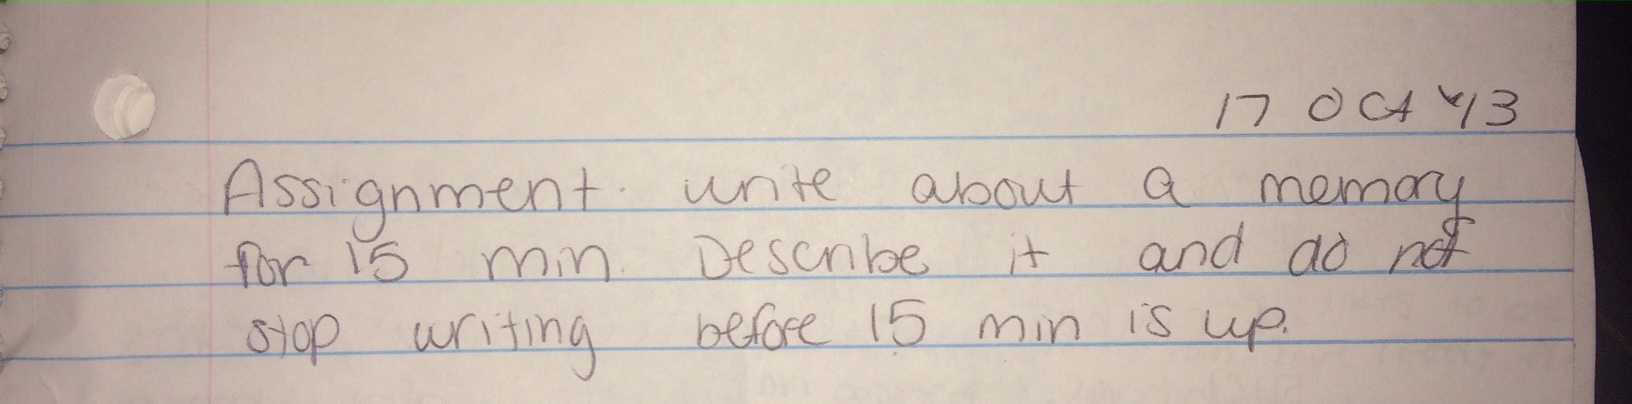 17 Oct '13
Assignment. write about a memory
for 15 min. Describe it and do not
stop writing before 15 min is up.